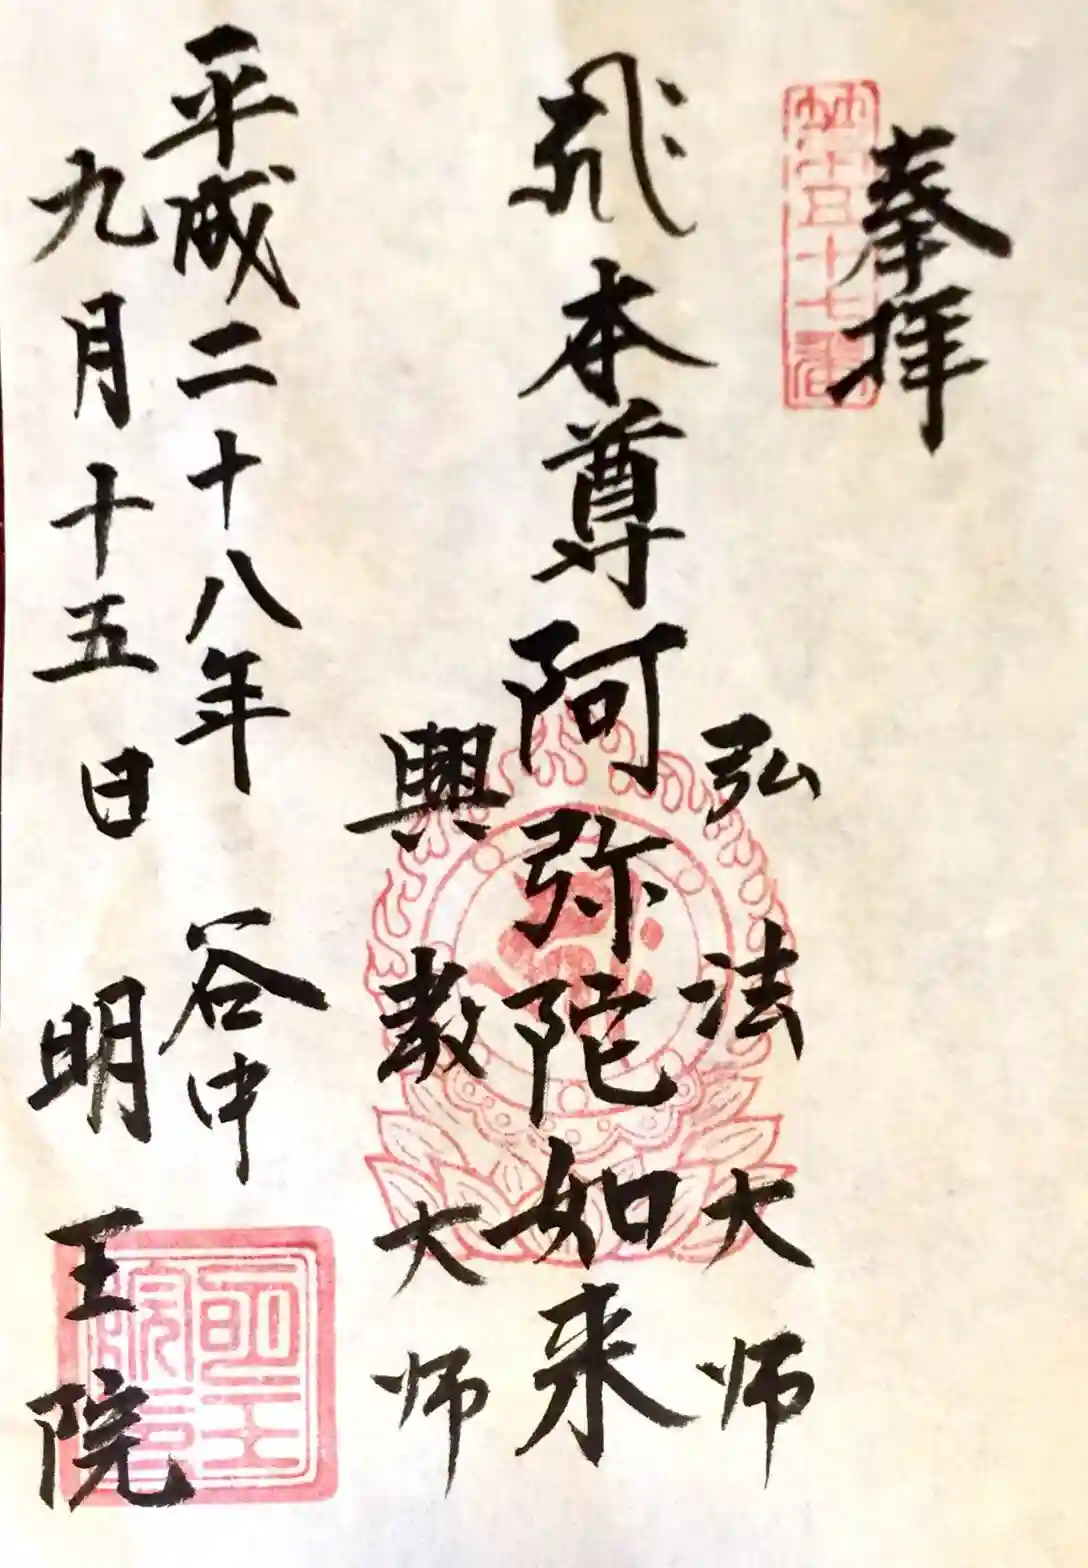 奉拝
第五十七番
弘法大师
𑖮𑖿𑖨𑖱𑖾 本尊阿弥陀如来
興教大师
平成二十八年 谷中
九月十五日 明王院